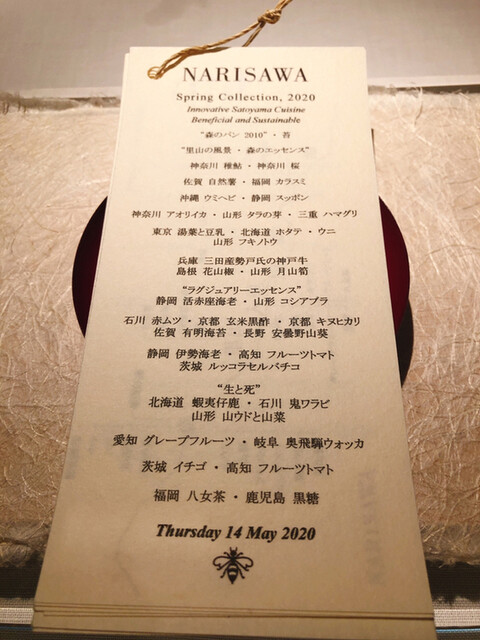 NARISAWA
Spring Collection, 2020
Innovative Satoyama Cuisine
Beneficial and Sustainable
“森のパン 2010”・苔
“里山の風景・森のエッセンス”
神奈川 稚鮎・神奈川 桜
佐賀 自然薯・福岡 カラスミ
沖縄 ウミヘビ・静岡 スッポン
神奈川 アオリイカ・山形 タラの芽・三重 ハマグリ
東京 湯葉と豆乳・北海道 ホタテ・ウニ
山形 フキノトウ
兵庫 三田産勢戸氏の神戸牛
島根 花山椒・山形 月山筍
“ラグジュアリーエッセンス”
静岡 活赤座海老・山形 コシアブラ
石川 赤ムツ・京都 玄米黒酢・京都 キヌヒカリ
佐賀 有明海苔・長野 安曇野山葵
静岡 伊勢海老・高知 フルーツトマト
茨城 ルッコラセルバチコ
“生と死”
北海道 蝦夷仔鹿・石川 鬼ワラビ
山形 山ウドと山菜
愛知 グレープフルーツ・岐阜 奥飛騨ウォッカ
茨城 イチゴ・高知 フルーツトマト
福岡 八女茶・鹿児島 黒糖
Thursday 14 May 2020